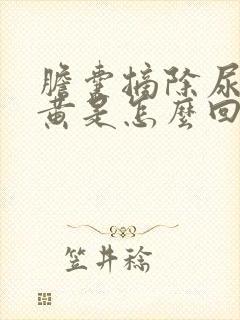 膽囊摘除尿
黃是怎麼回
笠井稔